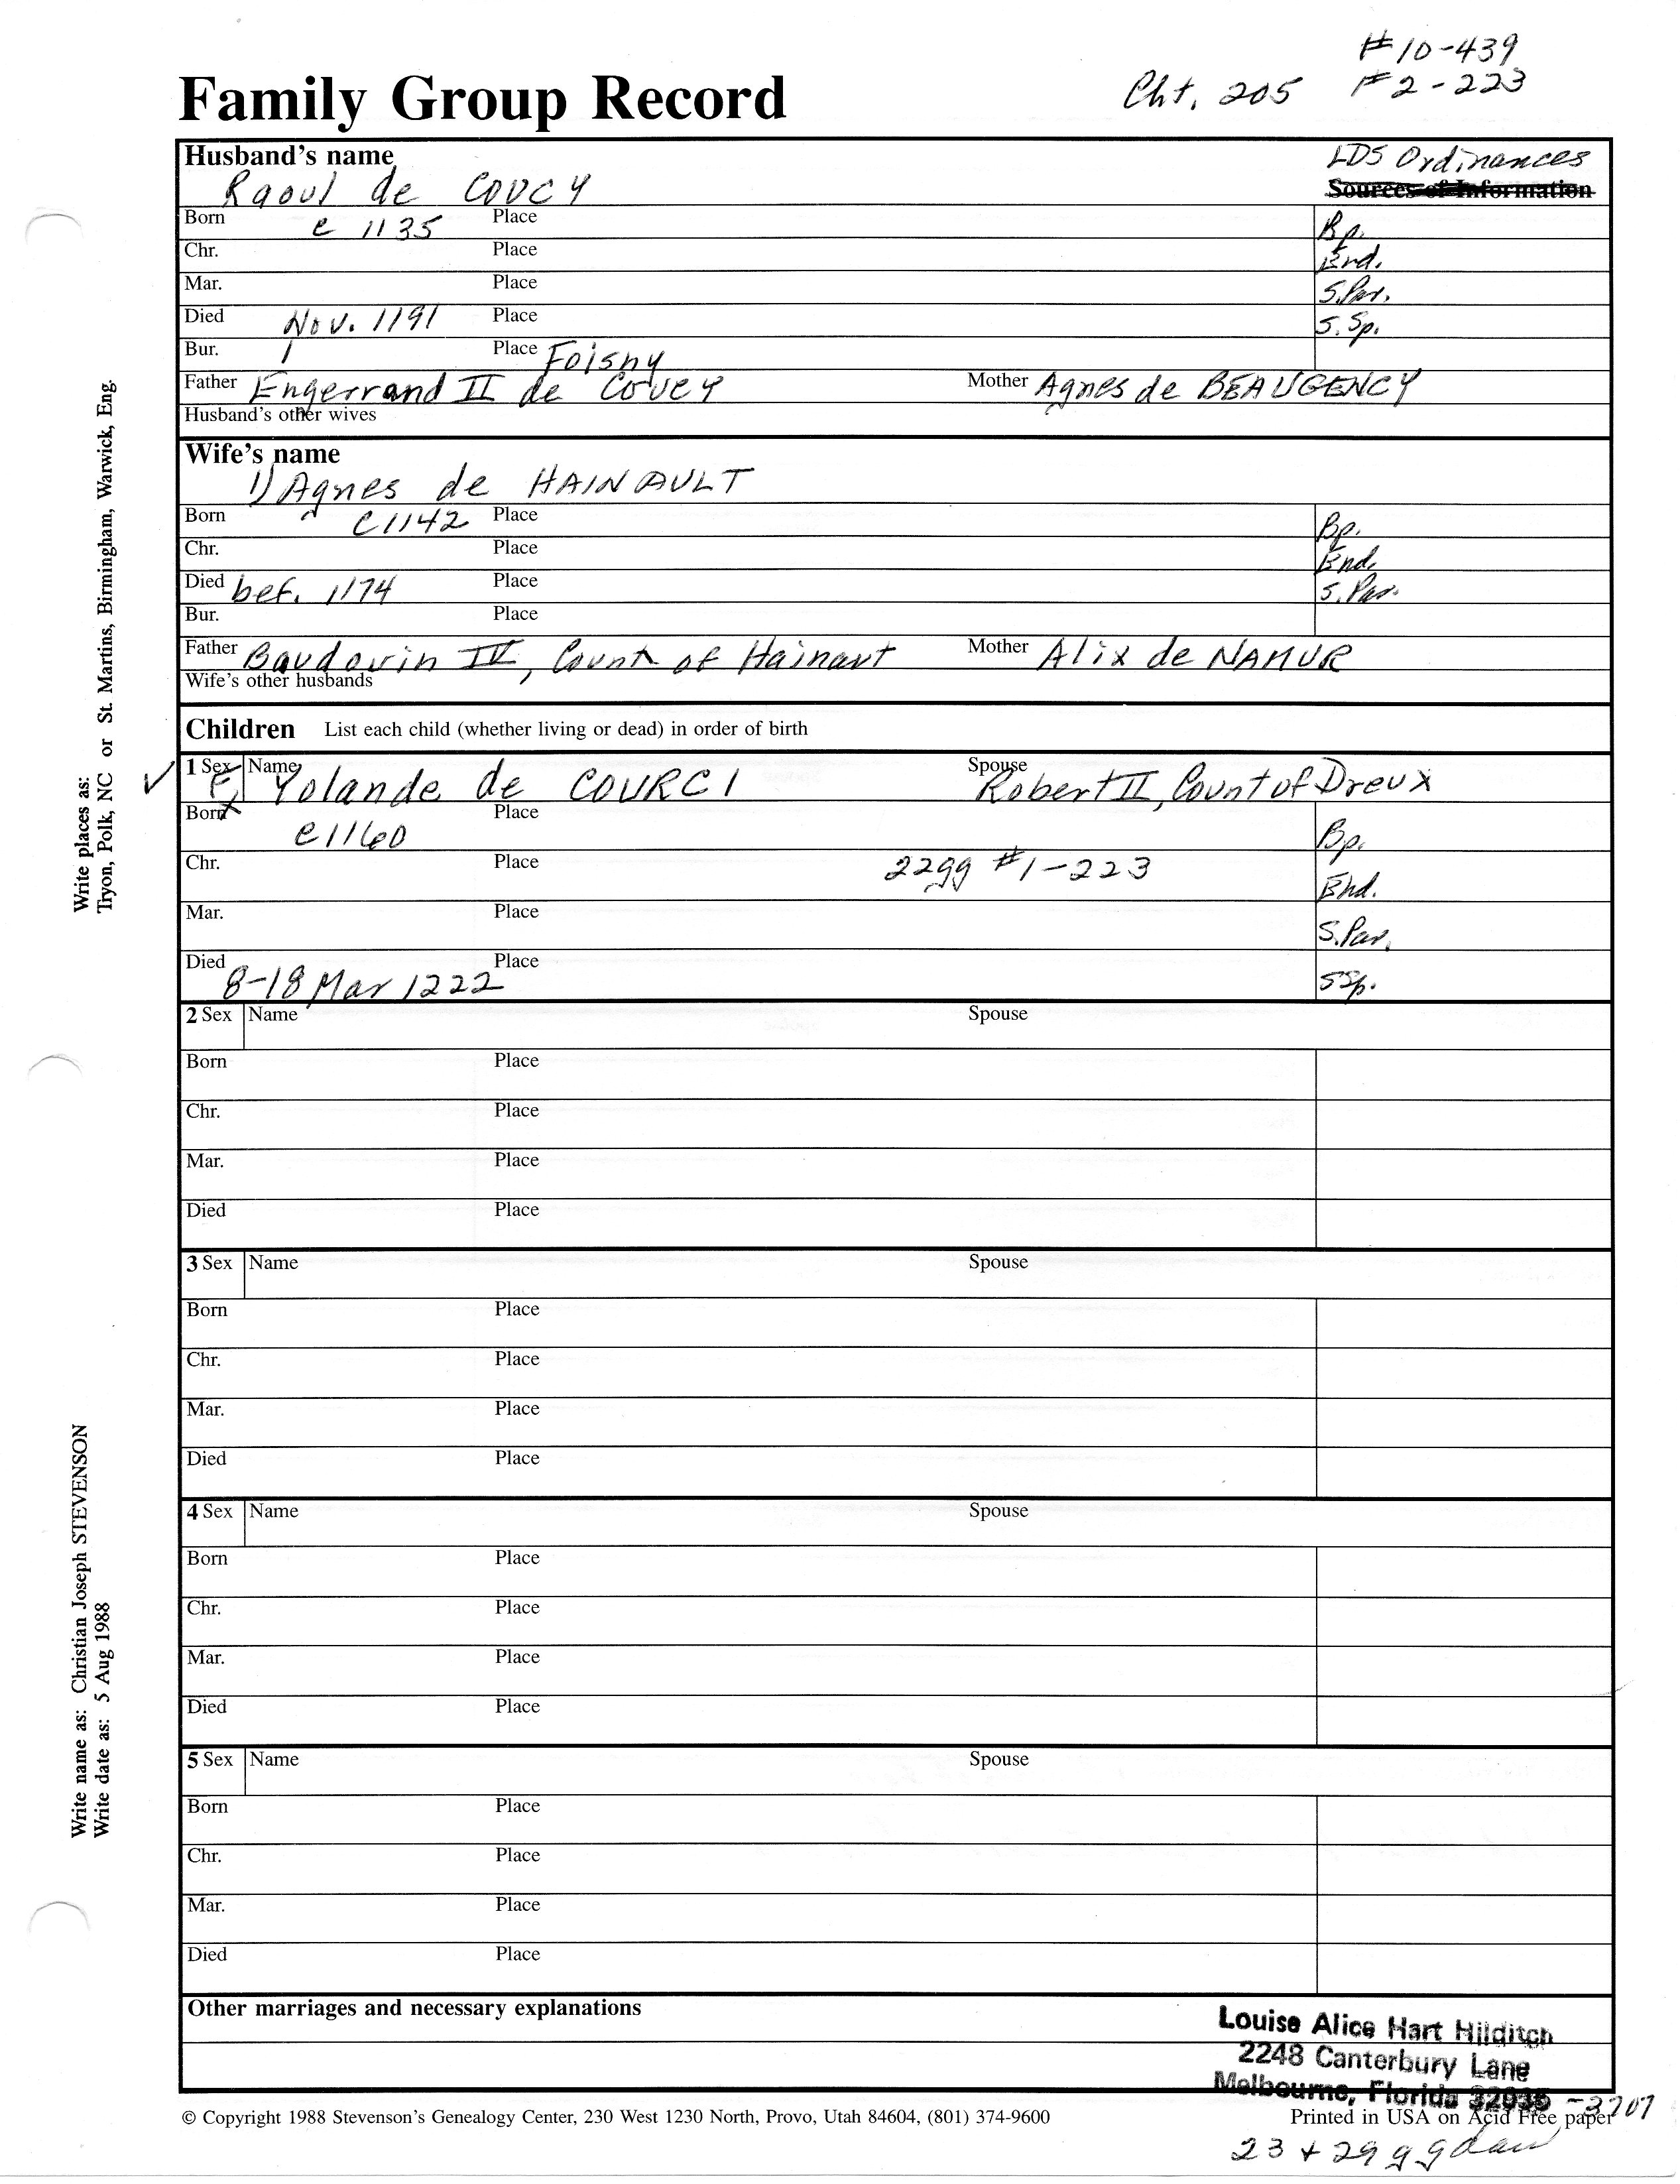 #10-439
Family Group Record
Cht. 205 #2-223
Husband's name
LDS Ordinances
Raoul de COUCY
Sources of Information
Born c 1135 Place
Bp.
Chr. Place
End.
Mar. Place
S.Par.
Died Nov. 1191 Place
S. Sp.
Bur. Place Foisny
Father Engerrand II de Coucy Mother Agnes de BEAUGENCY
Husband's other wives
Wife's name
1) Agnes de HAINAULT
Born c1142 Place
Bp.
Chr. Place
End.
Died bef. 1174 Place
S. Par.
Bur. Place
Father Baudouin IV, Count of Hainaut Mother Alix de NAMUR
Wife's other husbands
Children List each child (whether living or dead) in order of birth
✓ 1 Sex F Name Yolande de COURCI Spouse Robert II, Count of Dreux
Born x c1160 Place
Bp.
Chr. Place 22gg #1-223
End.
Mar. Place
S.Par.
Died 8-18 Mar 1222 Place
SSp.
2 Sex Name Spouse
Born Place
Chr. Place
Mar. Place
Died Place
3 Sex Name Spouse
Born Place
Chr. Place
Mar. Place
Died Place
4 Sex Name Spouse
Born Place
Chr. Place
Mar. Place
Died Place
5 Sex Name Spouse
Born Place
Chr. Place
Mar. Place
Died Place
Other marriages and necessary explanations
Louise Alice Hart Hilditch
2248 Canterbury Lane
Melbourne, Florida 32935 -3707
© Copyright 1988 Stevenson's Genealogy Center, 230 West 1230 North, Provo, Utah 84604, (801) 374-9600
Printed in USA on Acid Free paper
23 + 29 g gdau
Write places as:
Tryon, Polk, NC or St. Martins, Birmingham, Warwick, Eng.
Write name as: Christian Joseph STEVENSON
Write date as: 5 Aug 1988